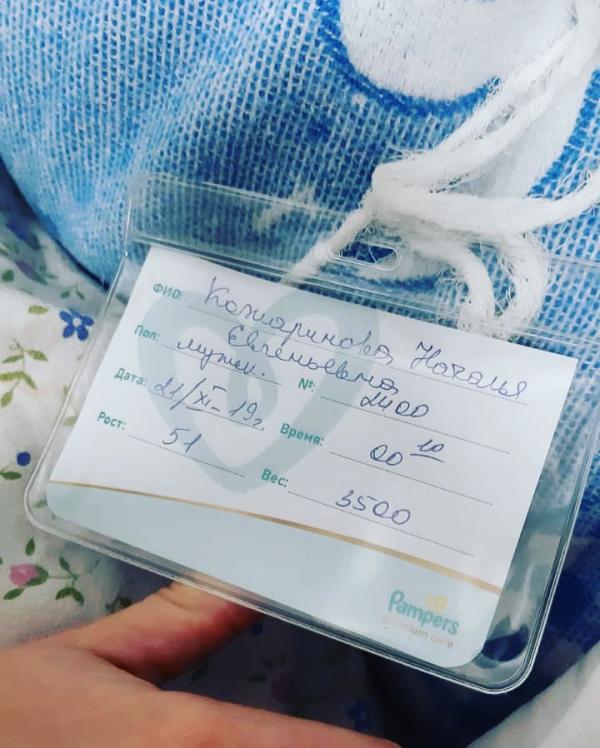 ФИО: Кожаринова Наталья
Евгеньевна
Пол: мужс. №: 2400
Дата: 21/XI-19г. Время: 00 10
Рост: 51 Вес: 3500
Pampers
premium care